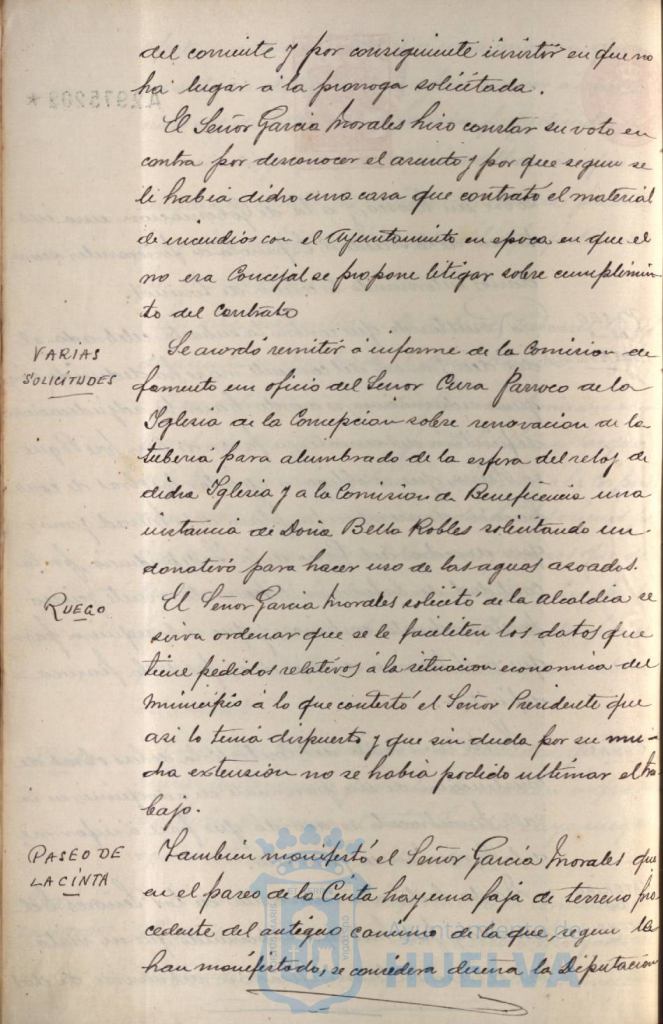 del corriente y por consiguiente insistir en que no
ha lugar á la prorroga solicitada.
El Señor Garcia Morales hizo constar su voto en
contra por desconocer el asunto y por que segun se
le habia dicho una casa que contrató el material
de incendios con el Ayuntamiento en epoca en que el
no era Concejal se propone litigar sobre cumplimien-
to del contrato
VARIAS
SOLICITUDES
Se acordó remitir á informe de la Comision de
fomento un oficio del Señor Cura Parroco de la
Iglesia de la Concepción sobre renovacion de la
tuberia para alumbrado de la esfera del reloj de
dicha Iglesia y a la Comision de Beneficencia una
instancia de Doña Bella Robles solicitando un
donativo para hacer uso de las aguas azoados.
RUEGO
El Señor Garcia Morales solicitó de la Alcaldia se
sirva ordenar que se le faciliten los datos que
tiene pedidos relativos á la situacion economica del
Municipio á lo que contestó el Señor Presidente que
asi lo tenia dispuesto y que sin duda por su mu-
cha extension no se habia podido ultimar el tra-
bajo.
PASEO DE
LA CINTA
Tambien manifestó el Señor Garcia Morales que
en el paseo de la Cinta hay una faja de terreno pro-
cedente del antiguo camino de la que, segun le
han manifestado, se considera dueña la Diputación
A2975202 *
Ayuntamiento de
HUELVA